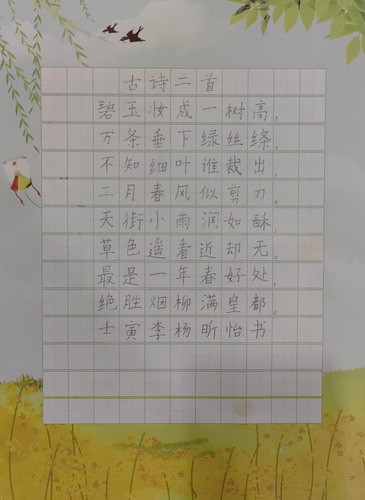 古诗二首
碧玉妆成一树高，
万条垂下绿丝绦。
不知细叶谁裁出，
二月春风似剪刀。
天街小雨润如酥，
草色遥看近却无。
最是一年春好处，
绝胜烟柳满皇都。
壬寅李杨昕怡书